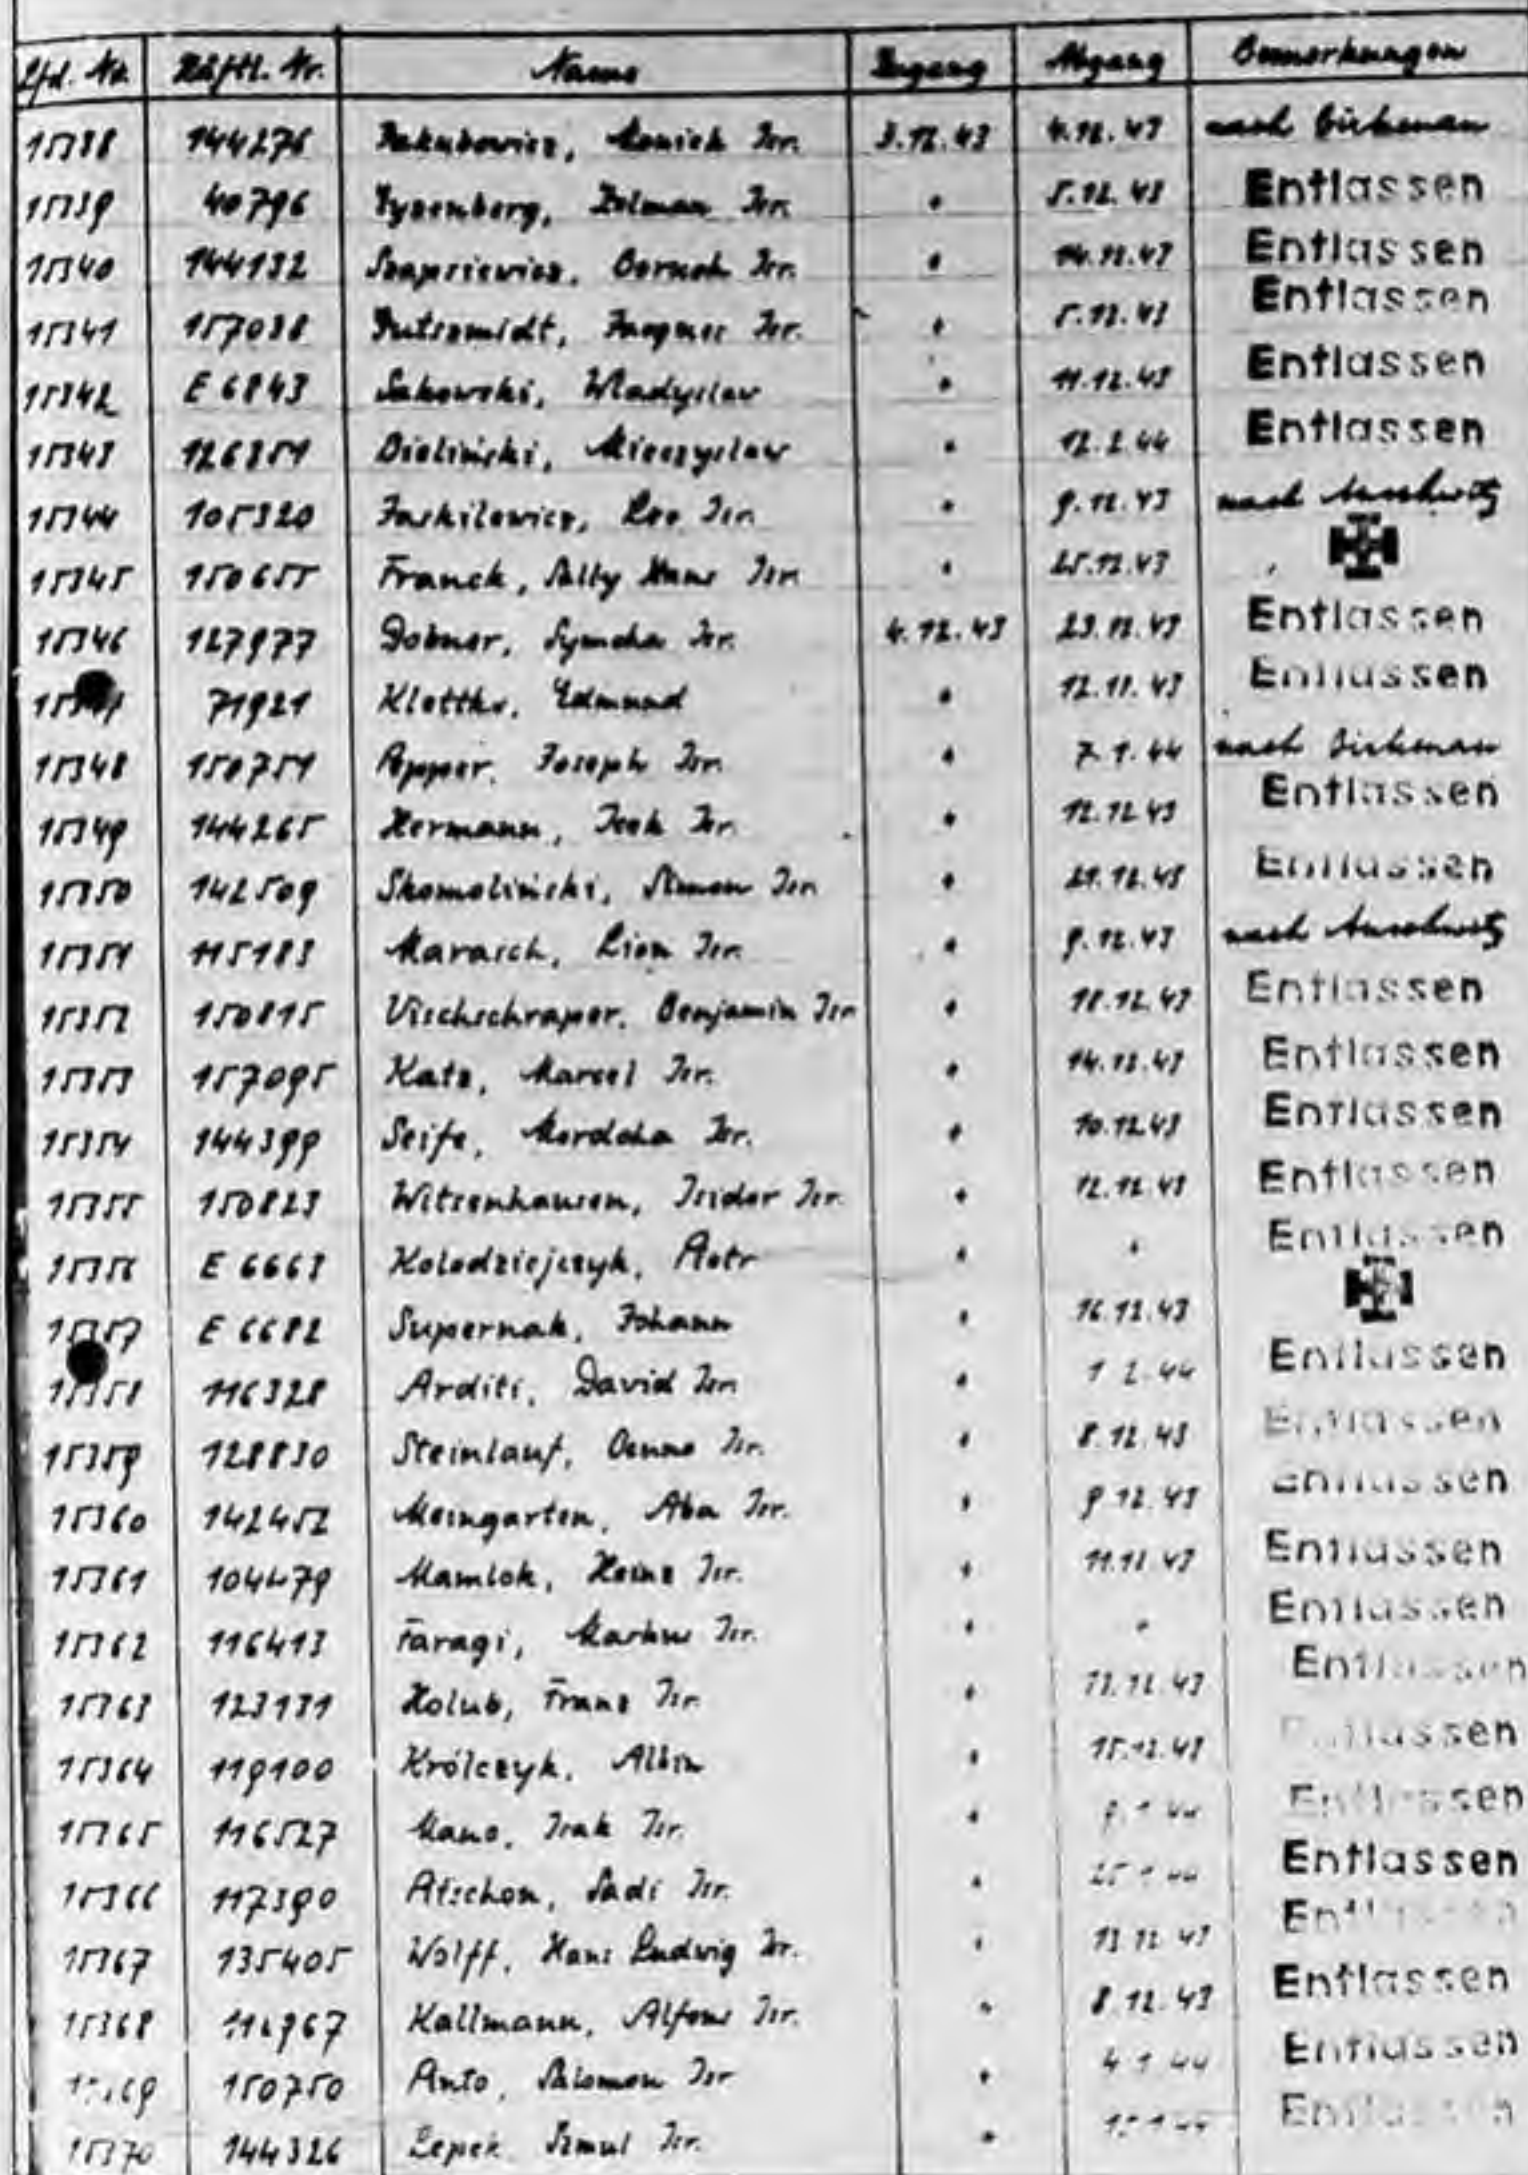 Lfd. Nr. Häftl. Nr. Name Zugang Abgang Bemerkungen
15338 144276 Jakubowicz, Moniek Isr. 3.12.43 4.12.43 nach Birkenau
15339 40796 Zelman Isr. " 5.12.43 Entlassen
15340 144132 Szapsiewicz, Bernoh Isr. " 14.12.43 Entlassen
15341 157038 Gutszmidt, Isr. " 5.12.43 Entlassen
15342 E 6843 Sakowski, Wladyslaw " 11.12.43 Entlassen
15343 126351 Bieliński, Mieczyslaw " 12.2.44 Entlassen
15344 105320 Jaskilewicz, Leo Isr. " 9.12.43 nach Auschwitz
15345 150655 Franck, Sally Hans Isr. " 25.12.43
15346 127977 Dobner, Symcha Isr. 4.12.43 23.12.43 Entlassen
71921 Klettke, Edmund " 12.12.43 Entlassen
15348 150751 Apper, Joseph Isr. " 7.1.44 nach Birkenau
15349 144265 Hermann, Icek Isr. " 12.12.43 Entlassen
15350 142509 Skomoliński, Simon Isr. " 21.12.43 Entlassen
15351 115183 Marasch, Lion Isr. " 9.12.43 nach Auschwitz
15352 150815 Vischschraper, Benjamin Isr. " 18.12.43 Entlassen
15353 157095 Katz, Marcel Isr. " 14.12.43 Entlassen
15354 144399 Seife, Mordcha Isr. " 10.12.43 Entlassen
15355 150823 Witsenhausen, Isidor Isr. " 12.12.43 Entlassen
15356 E 6663 Kolodziejczyk, Piotr " " Entlassen
15357 E 6682 Supernak, Johann " 16.12.43
15358 116328 Arditi, David Isr. " 1.2.44 Entlassen
15359 128830 Steinlauf, Benno Isr. " 8.12.43 Entlassen
15360 142452 Meingarten, Aba Isr. " 9.12.43 Entlassen
15361 104479 Mamlok, Heinz Isr. " 11.12.43 Entlassen
15362 116413 Faragi, Markus Isr. " " Entlassen
15363 123131 Holub, Franz Isr. " 13.12.43 Entlassen
15364 119100 Królczyk, Albin " 15.12.43 Entlassen
15365 116527 Mano, Isak Isr. " Entlassen
15366 117390 Atschon, Sadi Isr. " Entlassen
15367 135405 Wolff, Hans Ludwig Isr. " 13.12.43 Entlassen
15368 Kallmann, Alfons Isr. " 8.12.43 Entlassen
15369 150750 Anto, Salomon Isr. " 4.1.44 Entlassen
15370 144326 Lepek Szmul Isr. " Entlassen